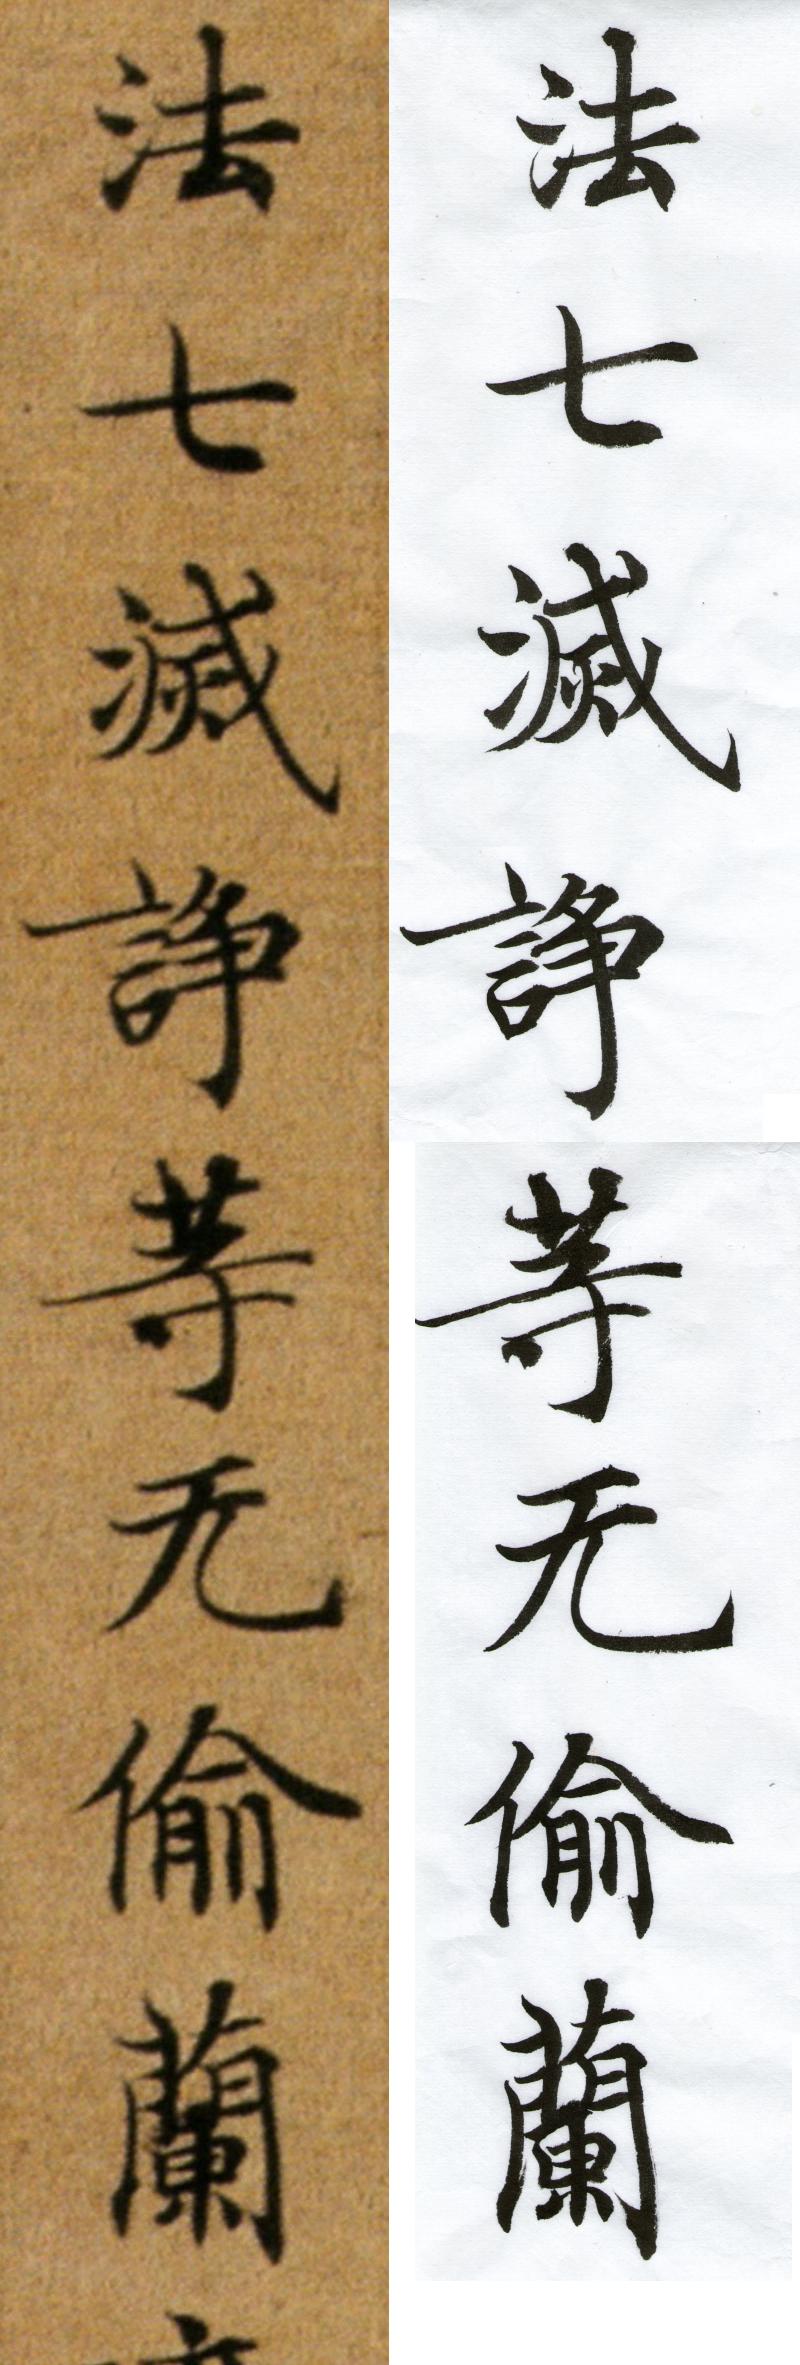 法七滅諍等无偷蘭
法七滅諍等无偷蘭